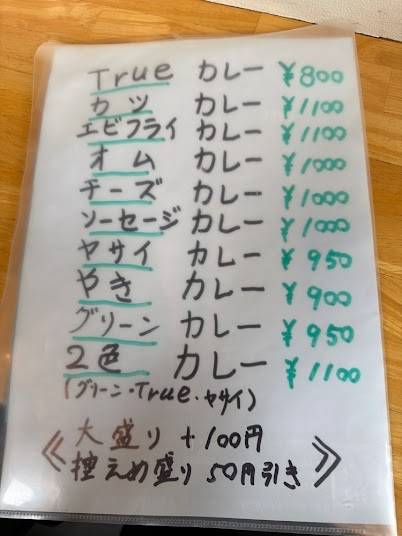 True カレー ¥800
カツ カレー ¥1100
エビフライ カレー ¥1100
オム カレー ¥1000
チーズ カレー ¥1000
ソーセージ カレー ¥1000
ヤサイ カレー ¥950
やき カレー ¥900
グリーン カレー ¥950
2色 カレー ¥1100
(グリーン・True・ヤサイ)
《大盛り +100円
控えめ盛り 50円引き》